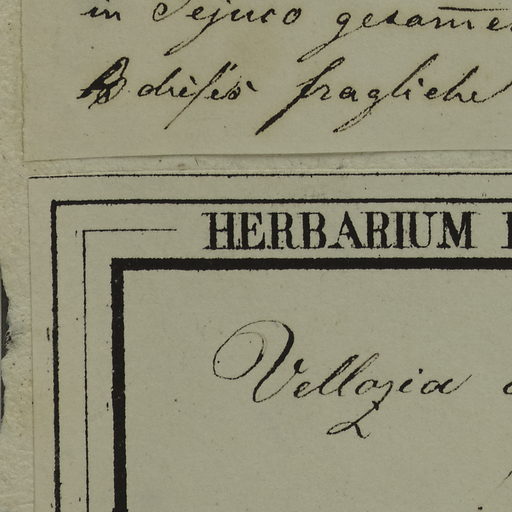 in Tejuco gesam̅e
B dieſes fragliche
HERBARIUM
Vellozia